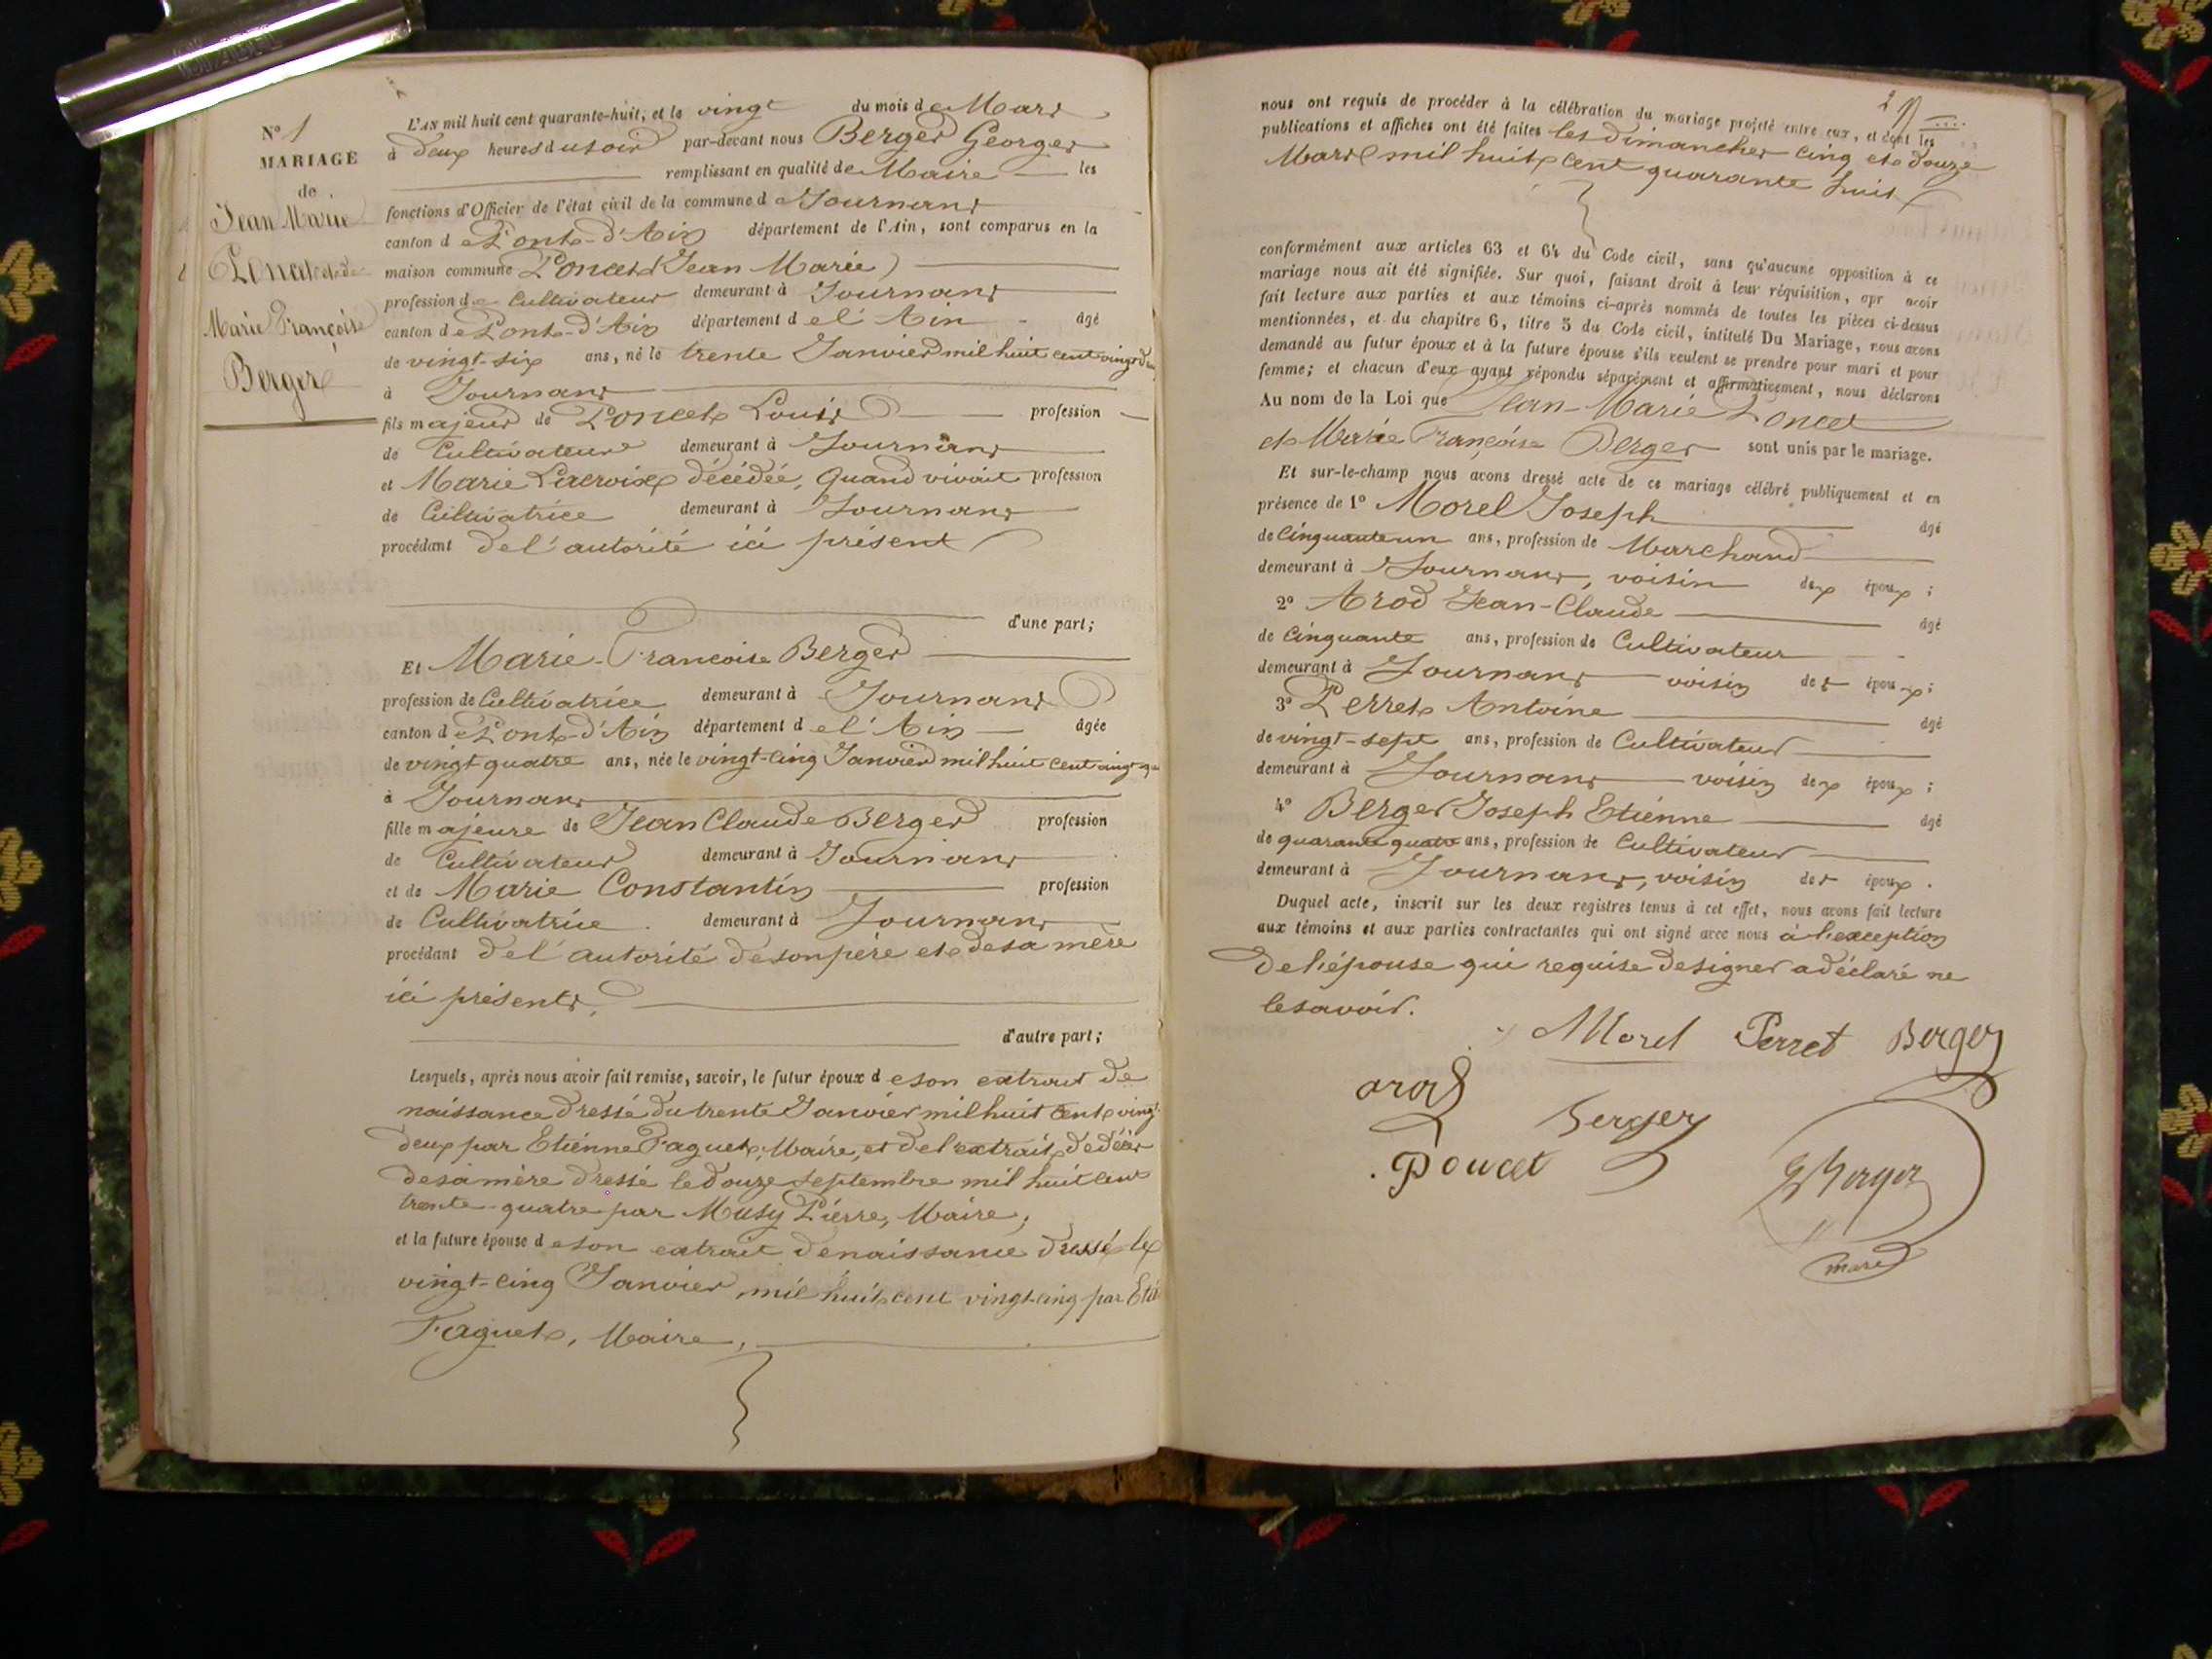 N° 1
MARIAGE
de
Jean Marie
Poncet et de
Marie Françoise
Berger
L'AN mil huit cent quarante-huit, et le vingt du mois de Mars
à deux heures du soir par-devant nous Berger Georges
remplissant en qualité de Maire les
fonctions d'Officier de l'état civil de la commune de Journans
canton de Pont-d'Ain département de l'Ain, sont comparus en la
maison commune Poncet (Jean Marie)
profession de Cultivateur demeurant à Journans
canton de Pont-d'Ain département de l'Ain âgé
de vingt-six ans, né le trente Janvier mil huit cent vingt d
à Journans
fils majeur de Poncet Louis profession
de Cultivateur demeurant à Journans
et Marie Lacroix décédée, Quand vivait profession
de Cultivatrice demeurant à Journans
procédant de l'autorité ici présent
d'une part;
Et Marie-Françoise Berger
profession de Cultivatrice demeurant à Journans
canton de Pont-d'Ain département de l'Ain âgée
de vingt quatre ans, née le vingt-cinq Janvier mil huit cent vingt q
à Journans
fille majeure de Jean Claude Berger profession
de Cultivateur demeurant à Journans
et de Marie Constantin profession
de Cultivatrice demeurant à Journans
procédant de l'autorité de son père et de sa mère
ici présents,
d'autre part;
Lesquels, après nous avoir fait remise, savoir, le futur époux de son extrait de
naissance dressé du trente Janvier mil huit cent vingt
deux par Etienne Faguet, Maire, et de l'extrait de décès
de sa mère dressé le douze Septembre mil huit cent
trente-quatre par Musy Pierre, Maire;
et la future épouse de son extrait de naissance dressé le
vingt-cinq Janvier mil huit cent vingt-cinq par Eti
Faguet, Maire,
2
nous ont requis de procéder à la célébration du mariage projeté entre eux, et dont les
publications et affiches ont été faites les dimanches cinq et douze
Mars mil huit cent quarante huit
conformément aux articles 63 et 64 du Code civil, sans qu'aucune opposition à ce
mariage nous ait été signifiée. Sur quoi, faisant droit à leur réquisition, apr avoir
fait lecture aux parties et aux témoins ci-après nommés de toutes les pièces ci-dessus
mentionnées, et du chapitre 6, titre 5 du Code civil, intitulé Du Mariage, nous avons
demandé au futur époux et à la future épouse s'ils veulent se prendre pour mari et pour
femme; et chacun d'eux ayant répondu séparément et affirmativement, nous déclarons
Au nom de la Loi que Jean-Marie Poncet
et Marie Françoise Berger sont unis par le mariage.
Et sur-le-champ nous avons dressé acte de ce mariage célébré publiquement et en
présence de 1° Morel Joseph âgé
de Cinquante un ans, profession de Marchand
demeurant à Journans, voisin des époux;
2° Arod Jean-Claude âgé
de Cinquante ans, profession de Cultivateur
demeurant à Journans voisin des époux;
3° Perret Antoine âgé
de vingt-sept ans, profession de Cultivateur
demeurant à Journans voisin des époux;
4° Berger Joseph Etienne âgé
de quarante quatre ans, profession de Cultivateur
demeurant à Journans, voisin des époux.
Duquel acte, inscrit sur les deux registres tenus à cet effet, nous avons fait lecture
aux témoins et aux parties contractantes qui ont signé avec nous à l'exception
de l'épouse qui requise de signer a déclaré ne
le savoir.
Morel Perret Berger
arod Berger
Poncet G Berger
maire